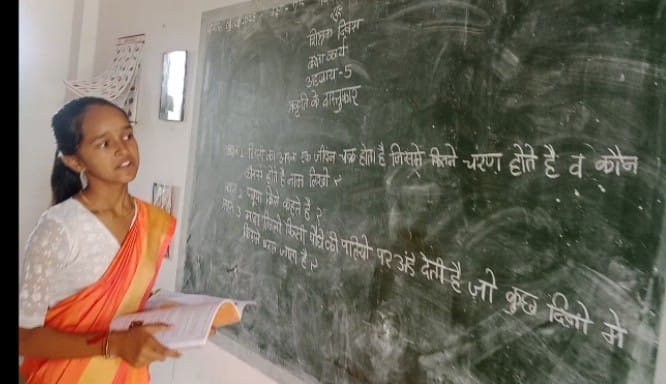 शिक्षक दिवस
कक्षा कार्य
अध्याय - 5
प्रकृति के वास्तुकार
प्रश्न 1 का अपना एक जीवन चक्र होता है जिसमें कितने चरण होते है व कौन
कौनसे होते है नाम लिखो ?
प्रश्न 2 प्यूपा किसे कहते है ?
प्रश्न 3 मादा तितली किसी पौधे की पत्तियो पर अंडे देती है जो कुछ दिनो मे
किसमे बदल जाता है ?